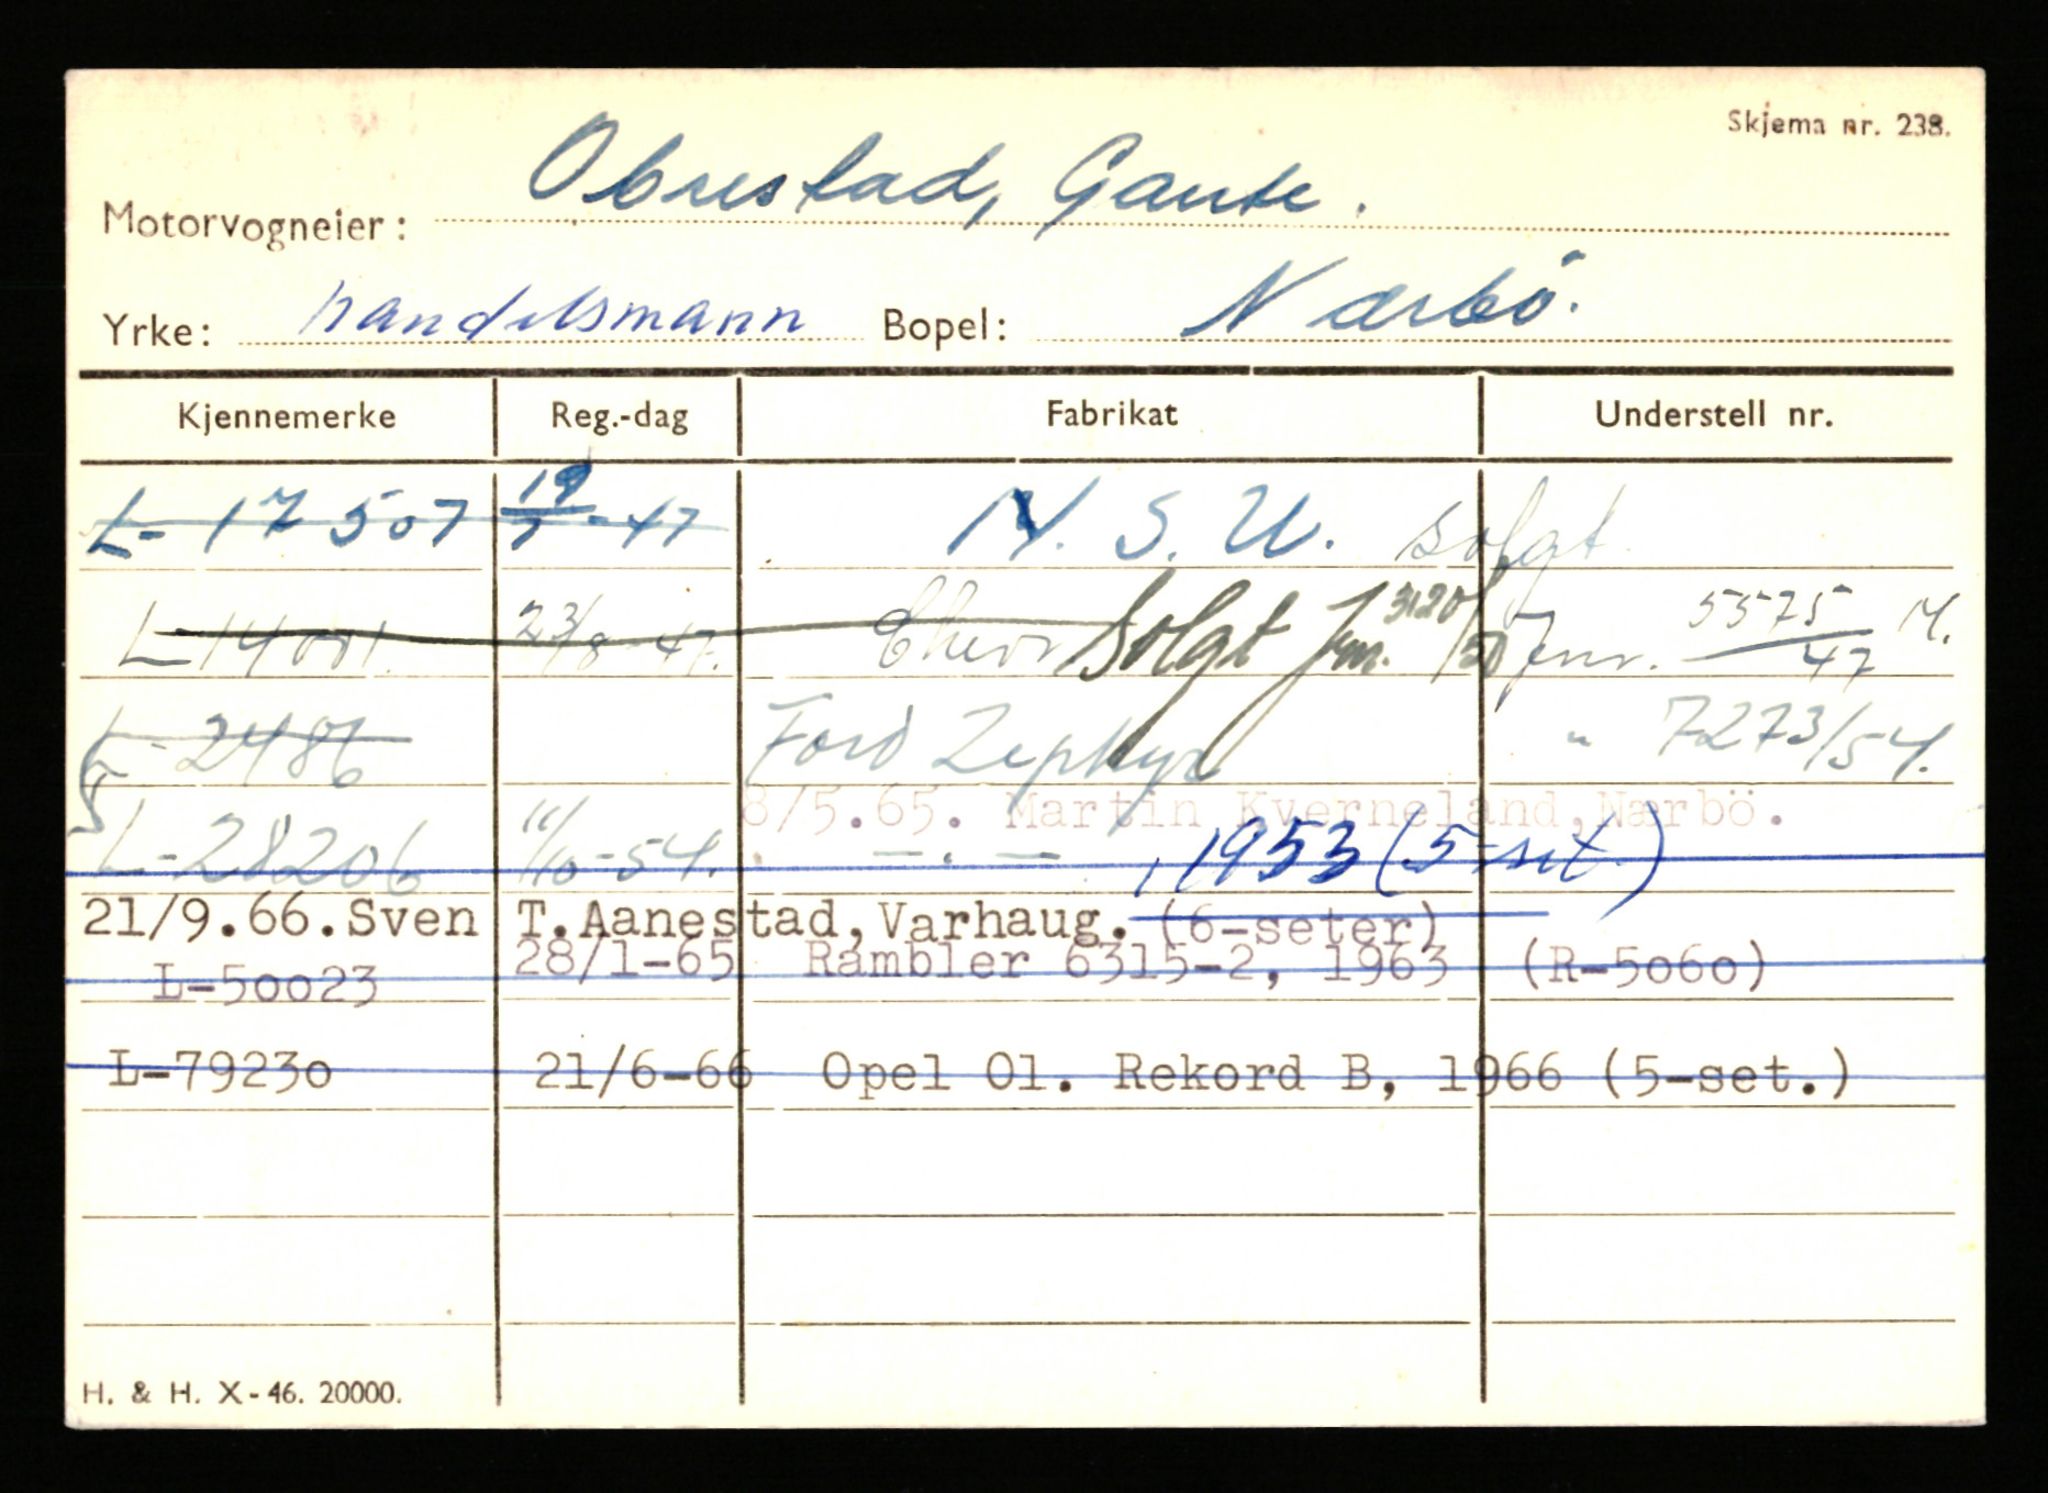 Skjema nr. 238.
Motorvogneier: Obrestad, Gaute.
Yrke: handelsmann Bopel: Nærbö.
Kjennemerke Reg.-dag Fabrikat Understell nr.
L- 17507 19/7-47 N. S. U. solgt
L-14001. 23/8-47. Chevr Solgt Jnr. 3120/50 Jnr. 5575/47 M.
L-2486 Ford Zephyr " 7273/54.
8/5.65. Martin Kverneland,Nærbö.
L-28206 11/10-54. —.— , 1953 (5-set.)
21/9.66.Sven T.Aanestad,Varhaug. (6-seter)
L-50023 28/1-65 Rambler 6315-2, 1963 (R-5060)
L-79230 21/6-66 Opel Ol. Rekord B, 1966 (5-set.)
H. & H. X-46. 20000.